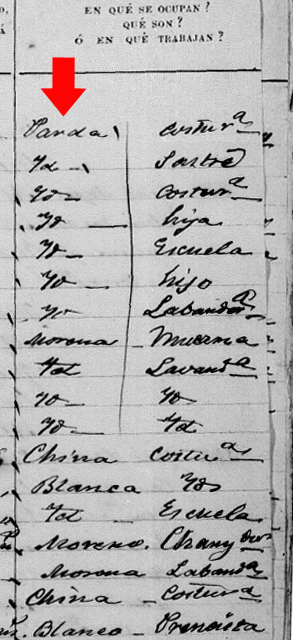 EN QUÉ SE OCUPAN?
QUÉ SON?
Ó EN QUÉ TRABAJAN?
Parda costurª
Yd Sastre
Yd costurª
Yd hija
Yd Escuela
Yd hijo
Yd Labanderª
Morena
Yd Lavandª
Yd Yd
Yd Yd
China costurª
Blanca Yd
Yd Escuela
Moreno.
Morena Labandª
China Costurª
Blanco